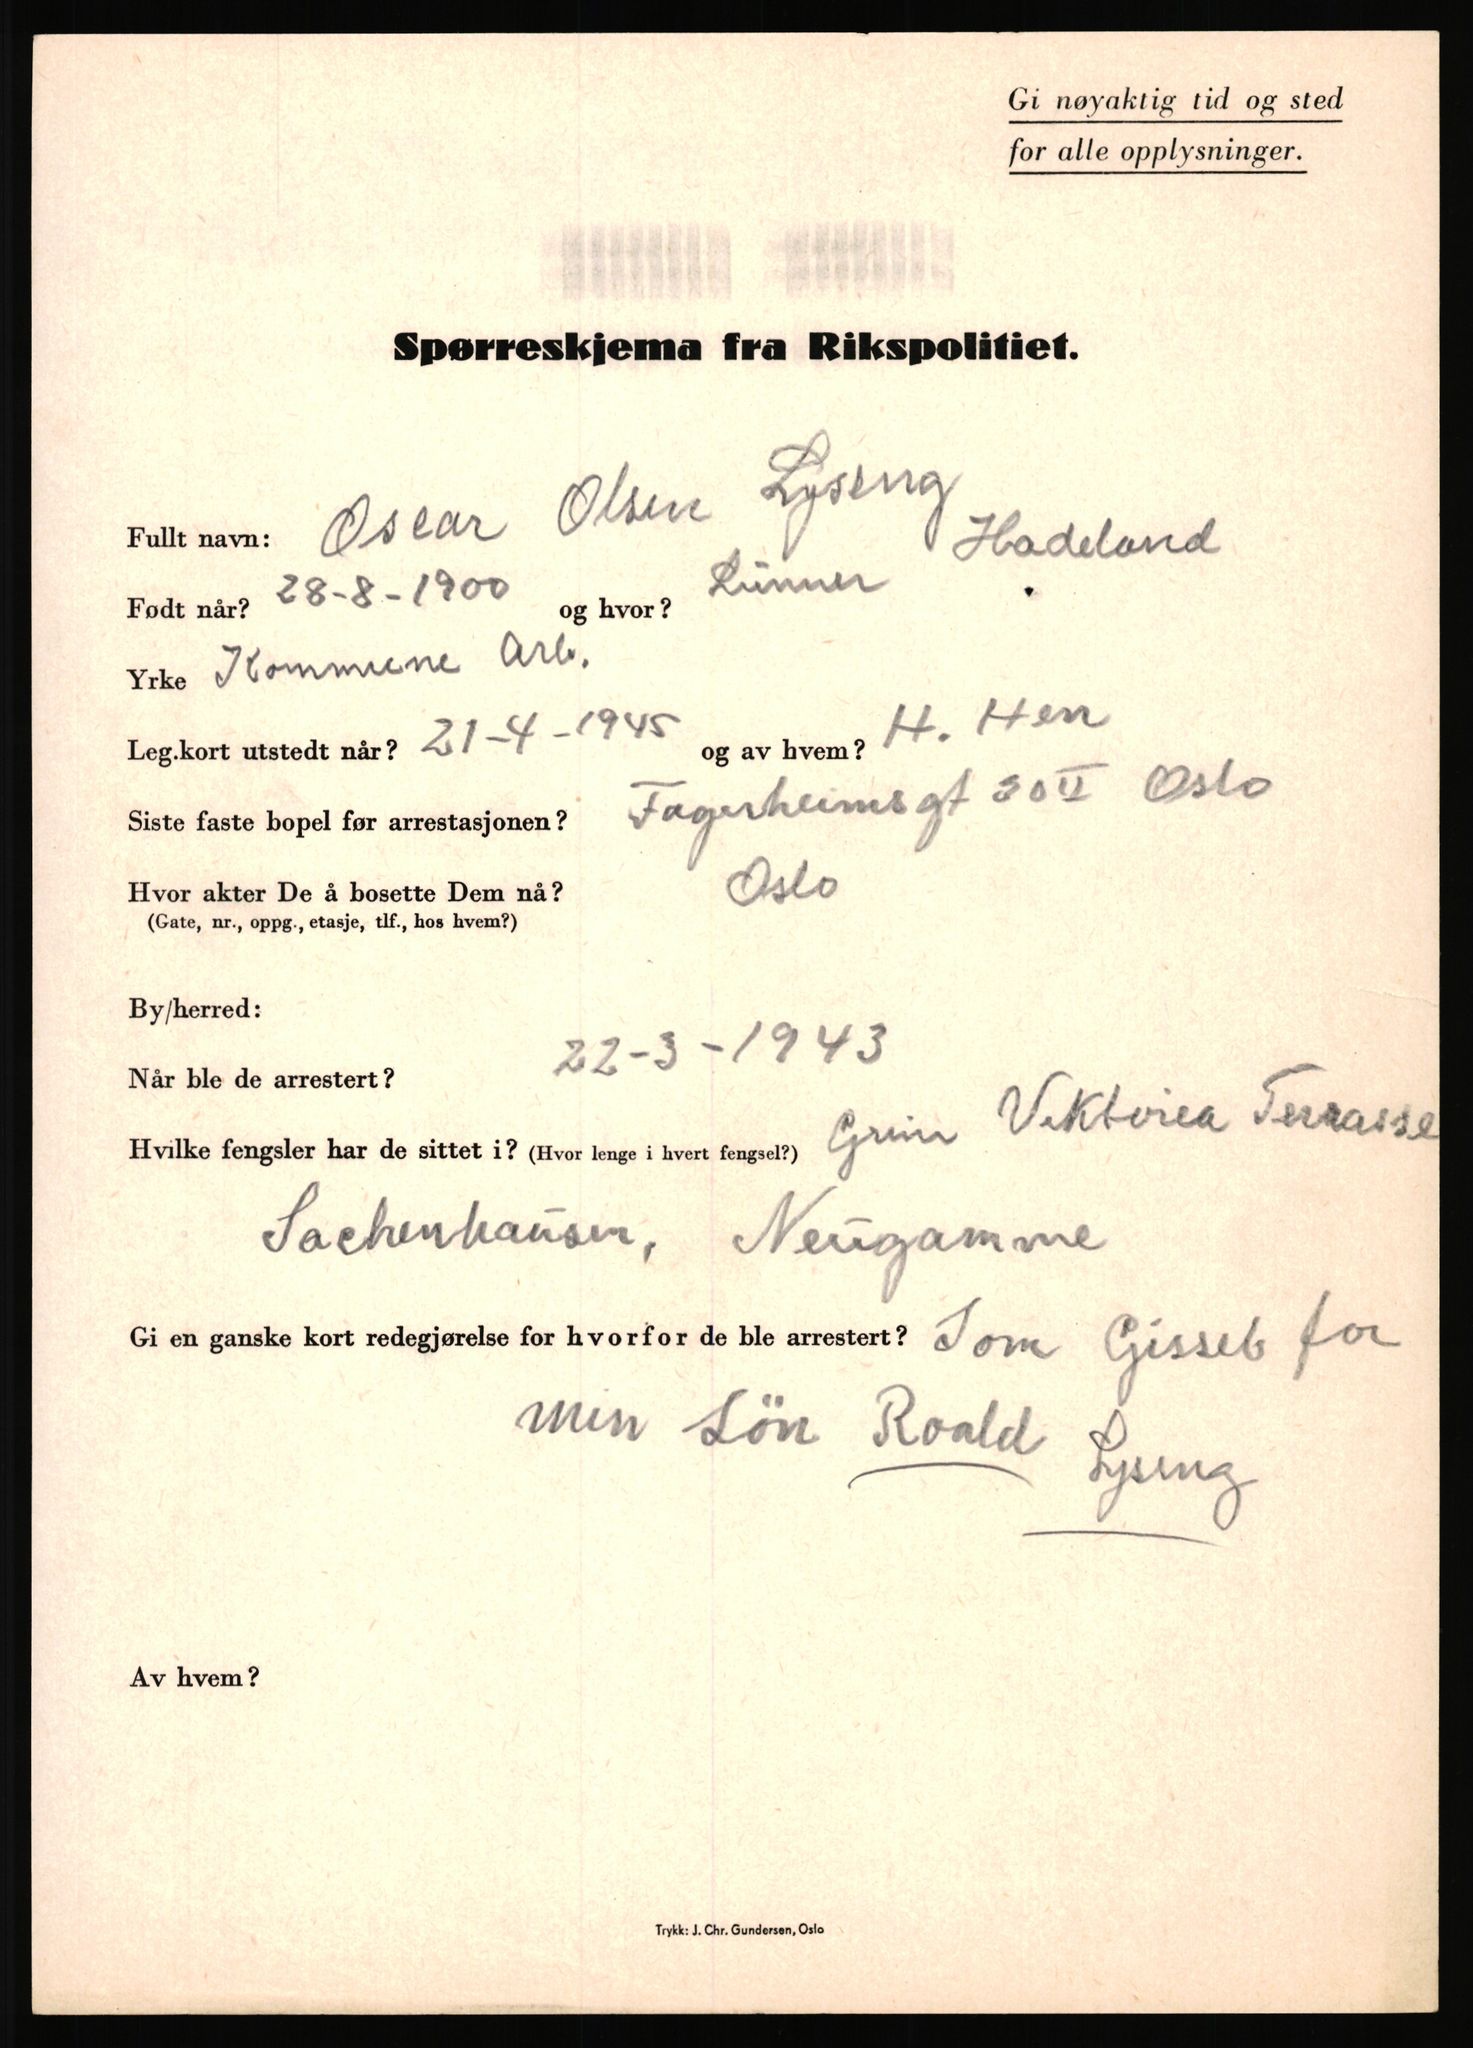 Gi nøyaktig tid og sted
for alle opplysninger.
Spørreskjema fra Rikspolitiet.
Fullt navn: Oscar Olsen Lyseng
Født når? 28-8-1900 og hvor? Lünner Hadeland
Yrke Kommune Arb.
Leg.kort utstedt når? 21-4-1945 og av hvem? H. Hen
Siste faste bopel før arrestasjonen? Fagerheimsgt 30 II Oslo
Hvor akter De å bosette Dem nå? Oslo
(Gate, nr., oppg., etasje, tlf., hos hvem?)
By/herred:
Når ble de arrestert? 22-3-1943
Hvilke fengsler har de sittet i? (Hvor lenge i hvert fengsel?) Grini Viktoriea Terrasse
Sachenhaüsen, Neügamme
Gi en ganske kort redegjørelse for hvorfor de ble arrestert? Som Gissel for
min Sön Roald Lyseng
Av hvem?
Trykk: J. Chr. Gundersen, Oslo